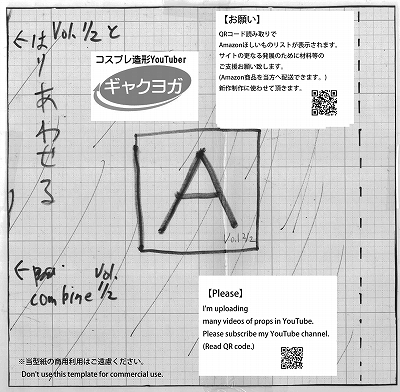 ←Vol.1/2と
はりあわせる
コスプレ造形YouTuber
ギャクヨガ
【お願い】
QRコード読み取りで
Amazonほしいものリストが表示されます。
サイトの更なる発展のために材料等の
ご支援お願い致します。
(Amazon商品を当方へ配送できます。)
新作制作に使わせて頂きます。
A
Vol.2/2
← Vol. 1/2
combine
【Please】
I'm uploading
many videos of props in YouTube.
Please subscribe my YouTube channel.
(Read QR code.)
※当型紙の商用利用はご遠慮ください。
Don't use this template for commercial use.